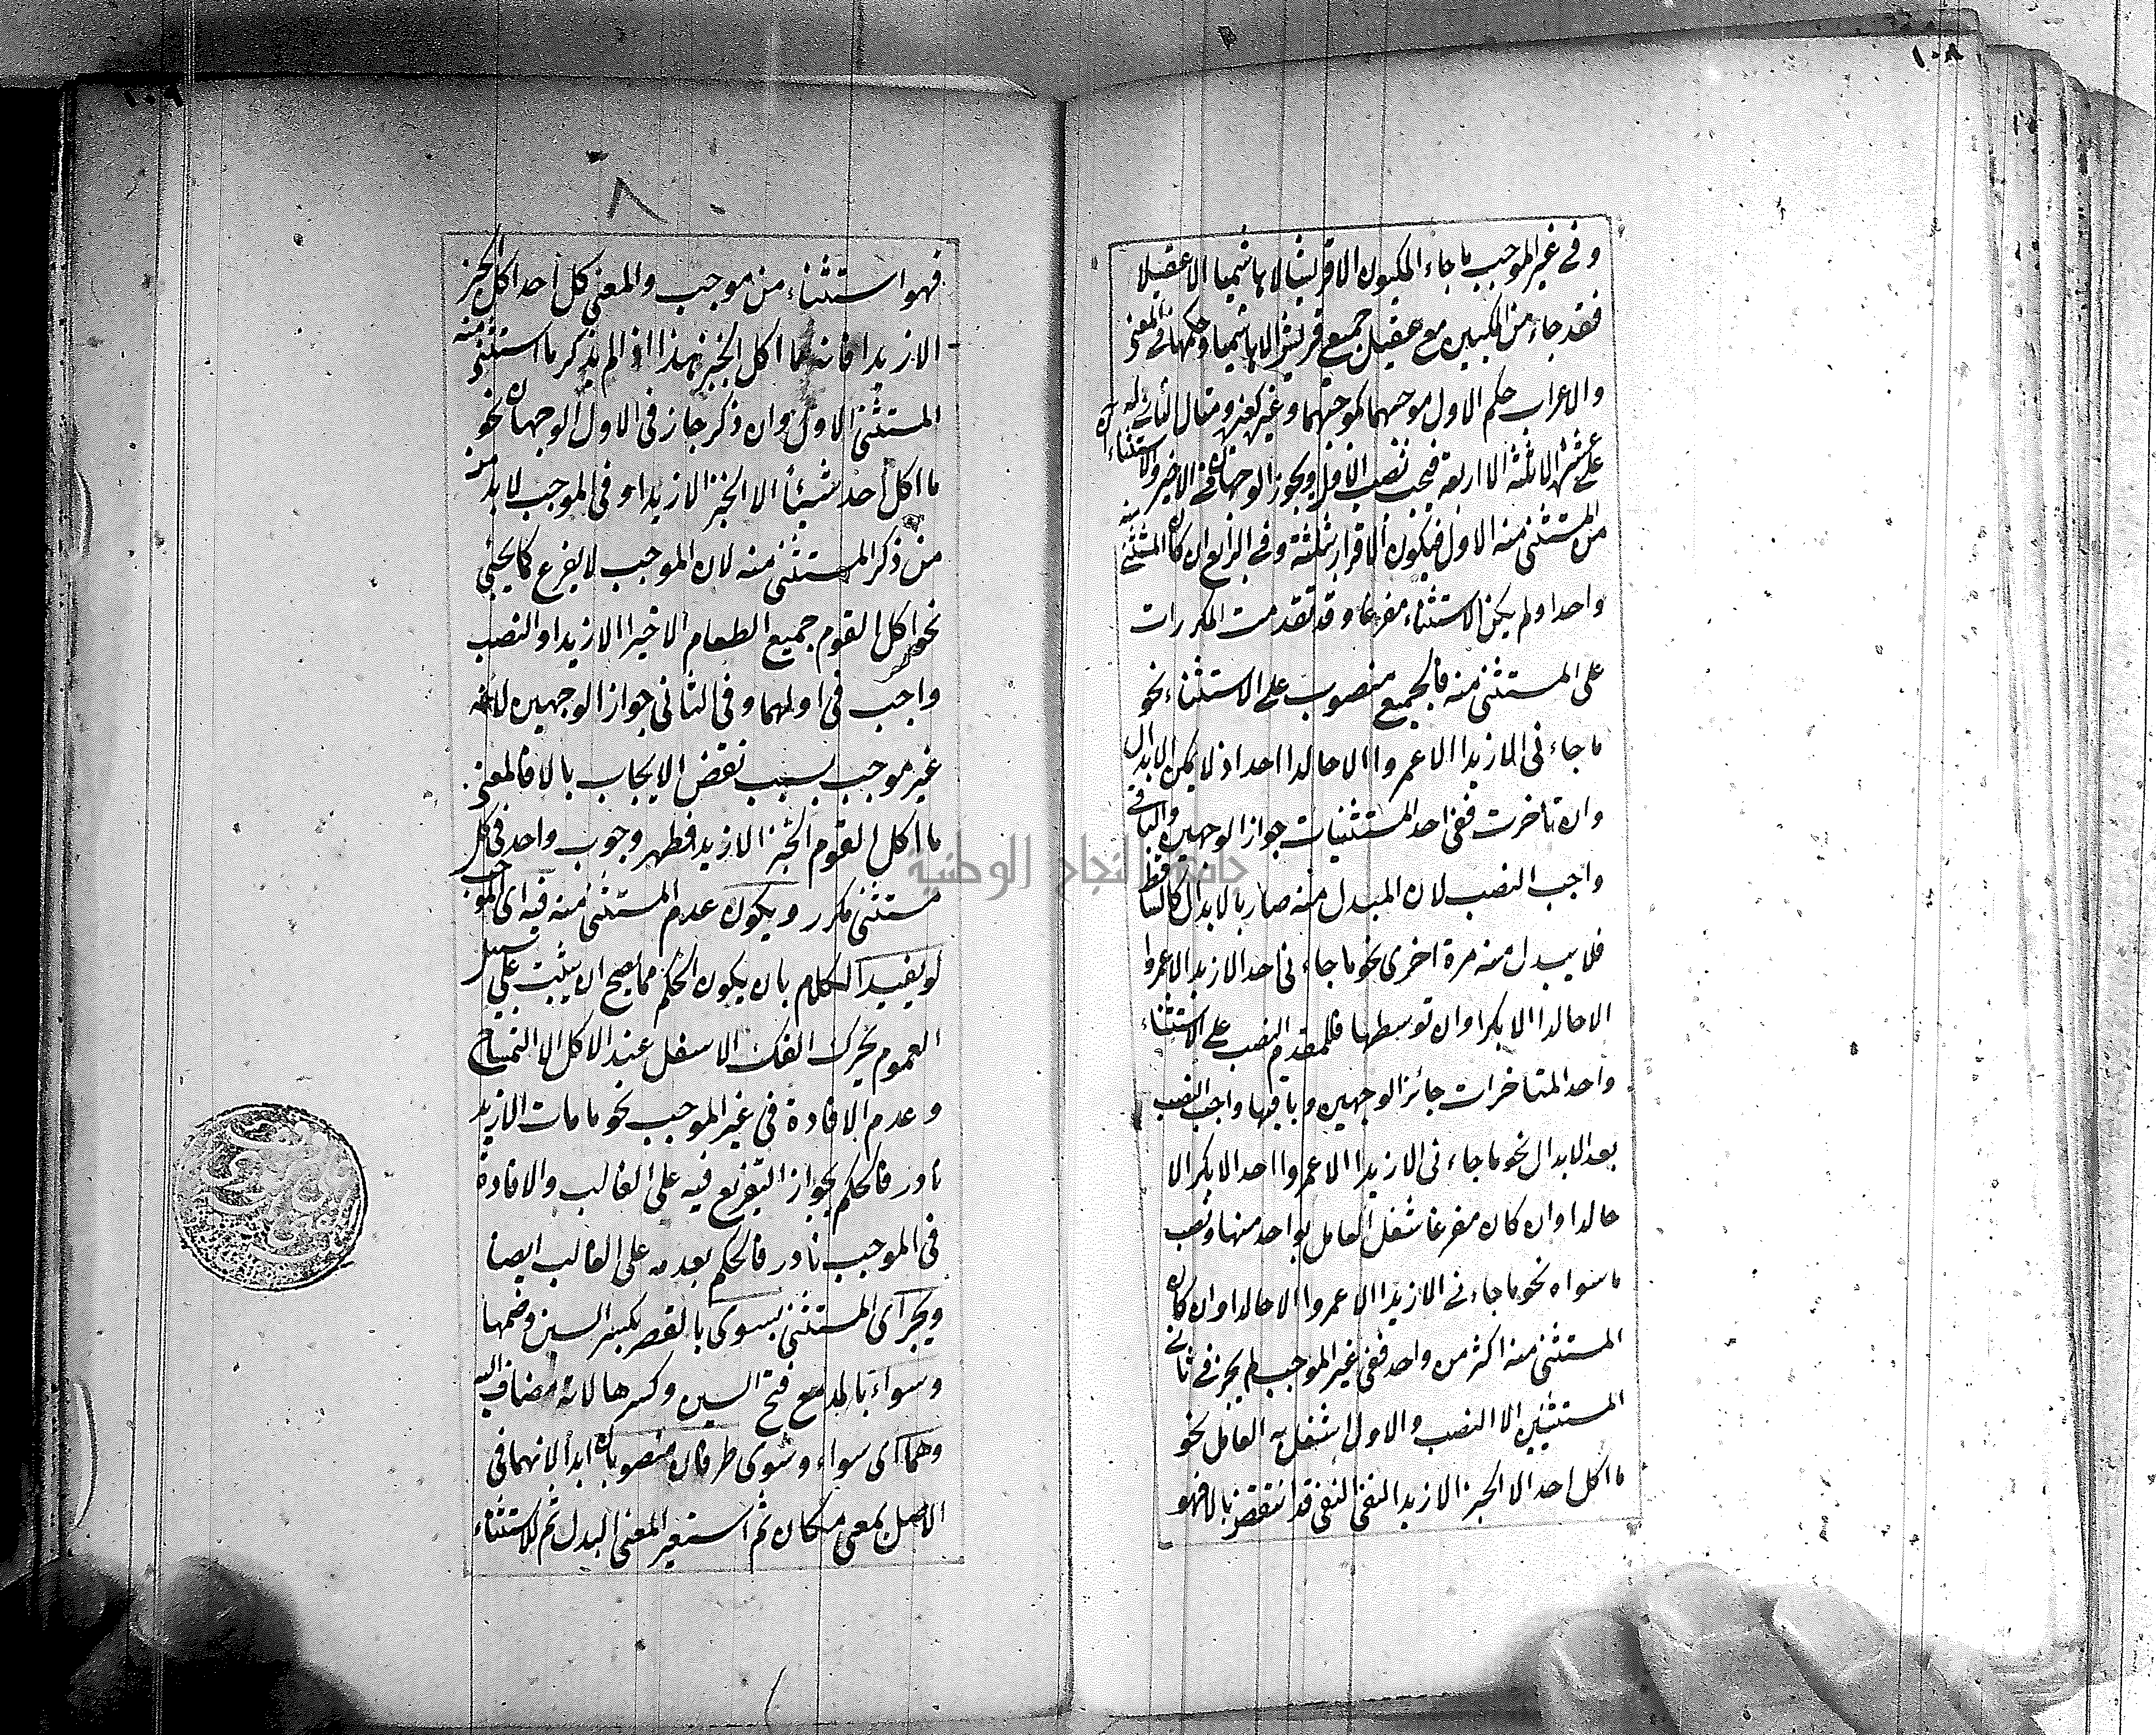 ١٠٨
وفى غير الموجب ما جاء المكيون الا قريشا الا هاشميا الا عقيلا
فقد جاء من المكيين مع عقيل جميع قريش الا هاشميا وحكمها فى المعنى
والاعراب حكم الاول موجبهما كموجبهما وغير كغيره ومثال الثانى له
على عشرة الا ثلثة الا اربعة فيجب نصب الاول ويجوز الوجهان فى الاخير والاستثناء
من المستثنى منه الاول فيكون الاقرار بثلثة وفى الرابع ان كان المستثنى منه
واحدا ولم يكن الاستثناء مفرغا وقد تقدمت المكررات
على المستثنى منه فالجميع منصوب على الاستثناء نحو
ما جاءنى الا زيدا الا عمروا الا خالدا احد اذ لا يمكن الابدال
وان تأخرت ففى احد المستثنيات جواز الوجهين والباقى
واجب النصب لان المبدل منه صار بالابدال كالساقط
فلا يبدل منه مرة اخرى نحو ما جاءنى احد الا زيد الا عمروا
الا خالدا الا بكرا وان توسطها فللمقدم النصب على الاستثناء
واحد المتاخرات جائز الوجهين وباقيها واجب النصب
بعد الابدال نحو ما جاءنى الا زيدا الا عمروا احد الا بكر الا
خالدا وان كان مفرغا شغل العامل بواحد منها ونصب
ما سواه نحو ما جاءنى الا زيد الا عمروا الا خالدا وان كان
المستثنى منه اكثر من واحد ففى غير الموجب لم يجز فى ثانى
المستثنيين الا النصب والاول اشتغل به العامل نحو
ما اكل احد الا الخبز الا زيدا النفى قد انتقض بالا فهو
١٠٩
٨٠
فهو استثناء من موجب والمعنى كل احد اكل الخبز
الا زيدا فانه ما اكل الخبز هذا اذا لم يذكر ما استثنى منه
المستثنى الاول وان ذكر جاز فى الاول الوجهان نحو
ما اكل احد شيئا الا الخبز الا زيدا وفى الموجب لا بد
من ذكر المستثنى منه لان الموجب لا يفرغ كما يجئ
نحو اكل القوم جميع الطعام الا خبزا الا زيدا والنصب
واجب فى اولهما وفى الثانى جواز الوجهين لانه
غير موجب بسبب نقض الايجاب بالا فالمعنى
ما اكل القوم الخبز الا زيد فظهر وجوب واحد فى كل
مستثنى مكرر ويكون عدم المستثنى منه فيه اى الموجب
لو يفيد الكلام بان يكون الحكم مما يصح ان يثبت على سبيل
العموم يحرك الفك الاسفل عند الاكل الا التمساح
وعدم الافادة فى غير الموجب نحو ما مات الا زيد
نادر فالحكم بجواز التفريغ فيه على الغالب والافادة
فى الموجب نادر فالحكم بعدمه على الغالب ايضا
ويجر اى المستثنى بسوى بالقصر بكسر السين وضمها
وسواء بالمد مع فتح السين وكسرها لانه مضاف اليه
وهما اى سواء وسوى ظرفان منصوبان ابدا لانهما فى
الاصل بمعنى مكان ثم استعير المعنى البدل ثم للاستثناء
جامعة النجاح الوطنية